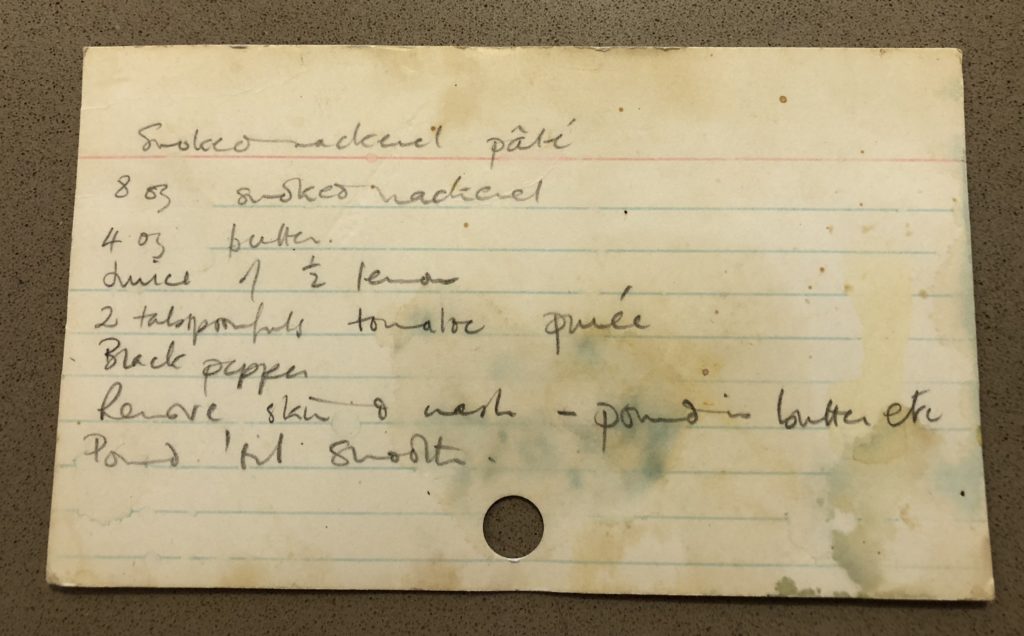 Smoked mackerel pâté
8 oz smoked mackerel
4 oz butter.
Juice of ½ lemon
2 tabspoonfuls tomatoe purée
Black pepper
Remove skin & mash - pound in butter etc
Pound 'til smooth.